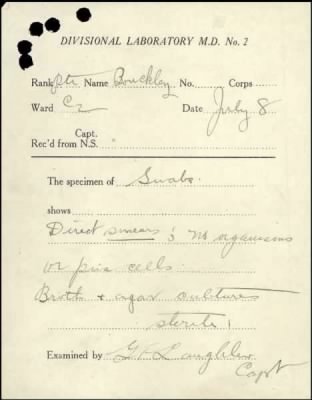 DIVISIONAL LABORATORY M.D. No. 2
Rank Pte Name Bouckley No. Corps
Ward C2 Date July 8
Capt.
Rec'd from N.S.
The specimen of Swabs.
shows
Direct smears ; no organisms
or pus cells
Broth + agar cultures
sterile
Examined by
Capt